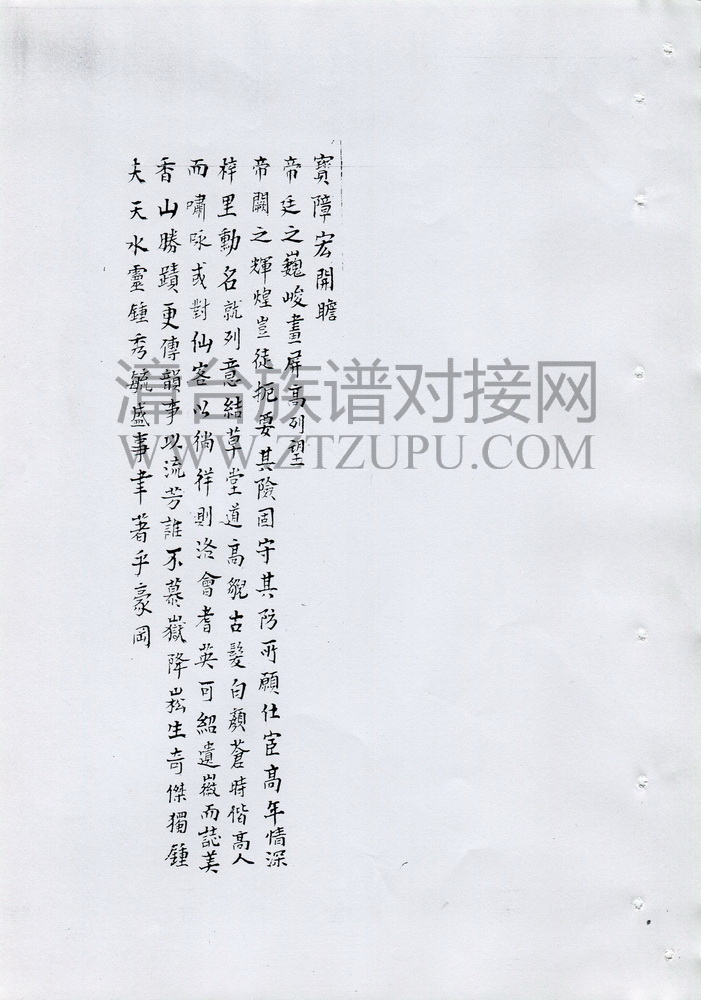 寳障宏開瞻
帝廷之巍峻畫屏高列望
帝闕之輝煌豈徒扼要其險固守其防所願仕宦高年情深
梓里勳名就列意結草堂道高貌古髮白顏蒼時偕高人
而嘯咏或對仙客以徜徉則洛會耆英可紹遺徽而誌美
香山勝蹟更傳韻事以流芳誰不慕嶽降崧生奇傑獨鍾
夫天水靈鍾秀毓盛事聿著乎豪岡
漳台族谱对接网
WWW.ZTZUPU.COM